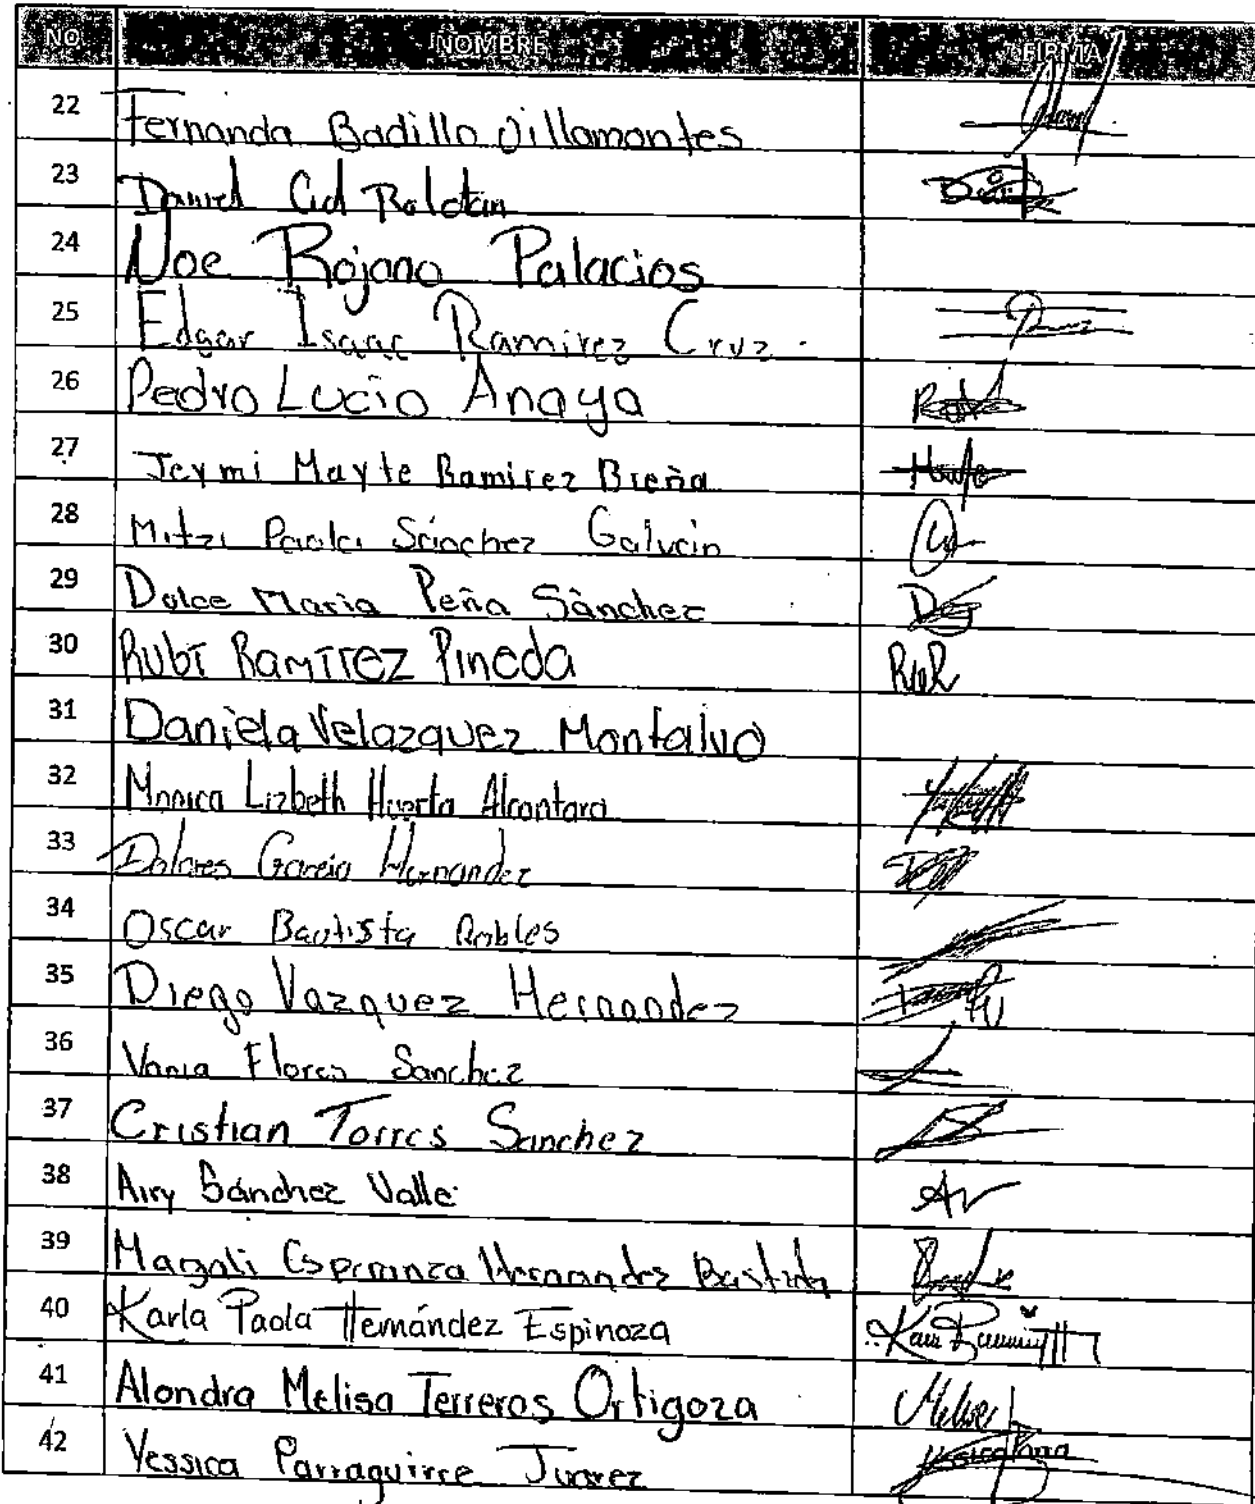 NO NOMBRE FIRMA
22 Fernanda Badillo Villamontes
23 Daniel Cid Roldan
24 Noe Rojano Palacios
25 Edgar Isaac Ramirez Cruz.
26 Pedro Lucio Anaya
27 Jeymi Mayte Ramirez Breña Mayte
28 Mitzi Paola Sánchez Galván
29 Dulce Maria Peña Sánchez
30 Rubi Ramirez Pineda
31 Daniela Velazquez Montalvo
32 Monica Lizbeth Huerta Alcantara
33 Dolores Garcia Hernandez
34 Oscar Bautista Robles
35 Diego Vazquez Hernandez
36 Vania Flores Sanchez
37 Cristian Torres Sanchez
38 Airy Sánchez Valle AV
39 Magali Esperanza Hernandez Bastida
40 Karla Paola Hernández Espinoza
41 Alondra Melisa Terreros Ortigoza
42 Yessica Parraguirre Juarez